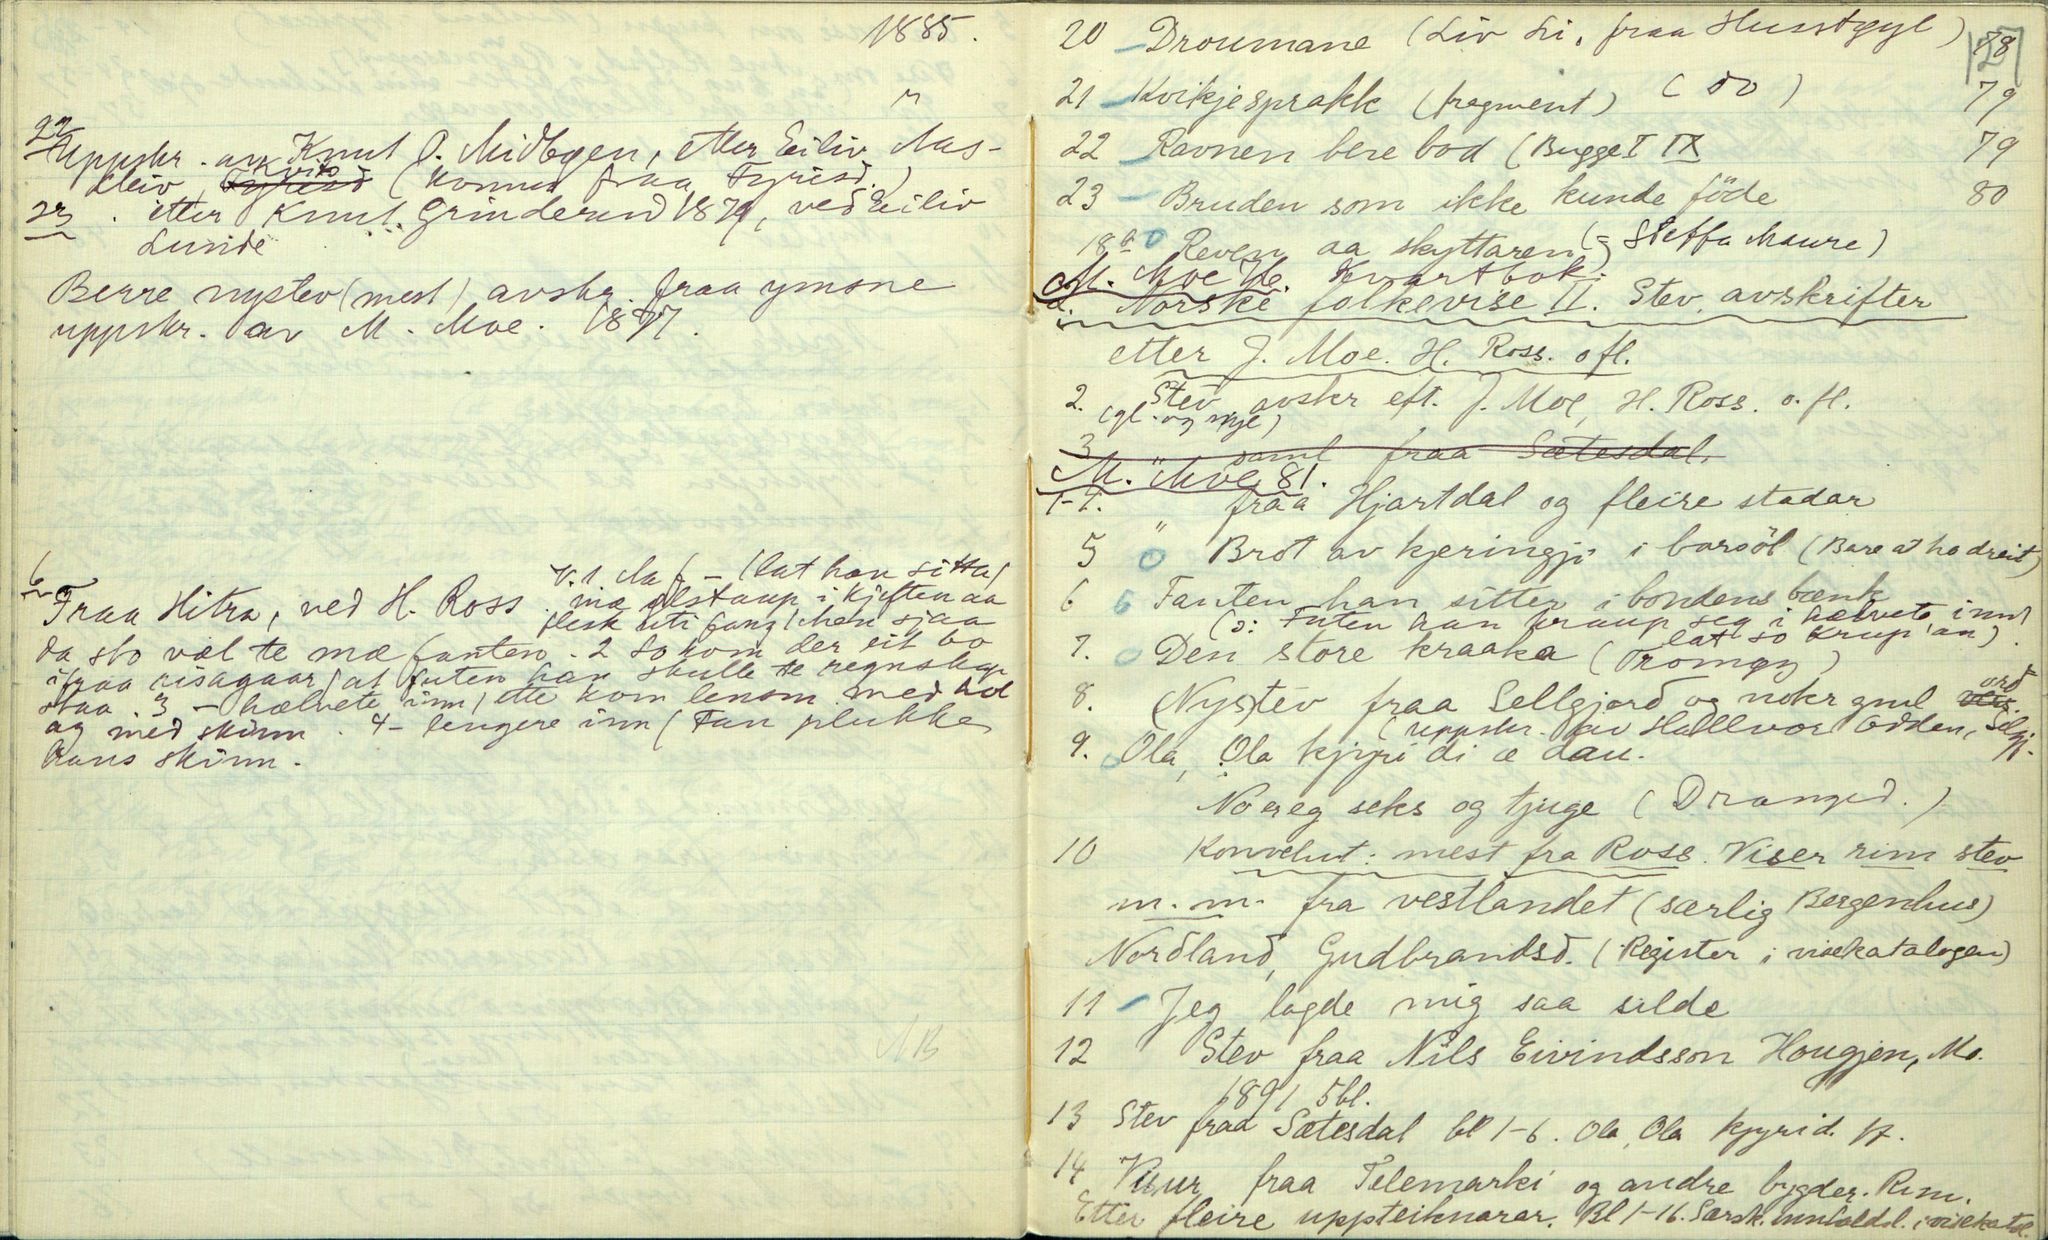 1885.
"
22
Uppskr. av Knut O. Midbøen, etter Eiliv Aas-
kleiv, Kvits Tyrisd (komne fraa Tyrisd.)
23 . etter Knut Grinderud 1879, ved Eiliv
Lunde
Berre nystev (mest) avskr. fraa ymsne
uppskr. av M. Moe. 1877.
6
Fraa Hitra, ved H. Ross. V. 1 da f – (lat han sitta/
mæ ølstaup i kjeften aa
flesk uti fang/ men sjaa
da sto væl te mæ fanten. 2 So kom der eit bo
ifraa risagaar/ at futen han skulle te regnskap
staa. 3 – hælvete inn/ ette kom lensm. med hol
og med skinn. 4 – lengere inn (Fan plukka
hans skinn.
NB
27
20 – Droumane (Liv Li, fraa Husstøyl) 78
21 – Kvikjesprakk (fragment) (do) 79
22 – Ravnen bere bod (Bugge I IX 79
23 – Bruden som ikke kunde föde 80
18 b o Reven aa skyttaren (= Steffa Maure)
M. Moe 76. Kvartbok.
1. Norske folkevise II. Stev. avskrifter
etter J. Moe. H. Ross. ofl.
2. Stev avskr eft. J. Moe, H. Ross. o. fl.
(gl. og nye)
3 " saml fraa Sætesdal.
M. Moe 81.
1-4. fraa Hjartdal og fleire stadar
5 " o Brot av kjeringji i barsöl (Bare at ho dreit)
6 o Fanten han sitter i bondens bænk
(ɔ: Futen han kraup seg i hælvete inn/
lat so krup an).
7. o Den store kraaka (Tromøy)
8. (Ny)stev fraa Sellgjord og nokr gml vers. ord
(uppskr. av Hallvor Odden, Selgj.
9. o Ola, Ola kjyri di æ dau.
No ereg seks og tjuge (Dranged.)
10 Konvolut: mest fra Ross. Viser rim stev
m. m. fra vestlandet (særlig Bergenhus)
Nordland, Gudbrandsd. (Register i visekatalogen)
11 – Jeg lagde mig saa silde
12 Stev fraa Nils Eivindsson Hougjen, Mo.
1891 5bl.
13 Stev fraa Sætesdal bl 1-6. Ola, Ola kjyrid.
14 Visur fraa Telemarki og andre bygder. Rim.
Etter fleire uppteiknarar. Bl 1-16. Særsk. innholdsl. i visekatal.